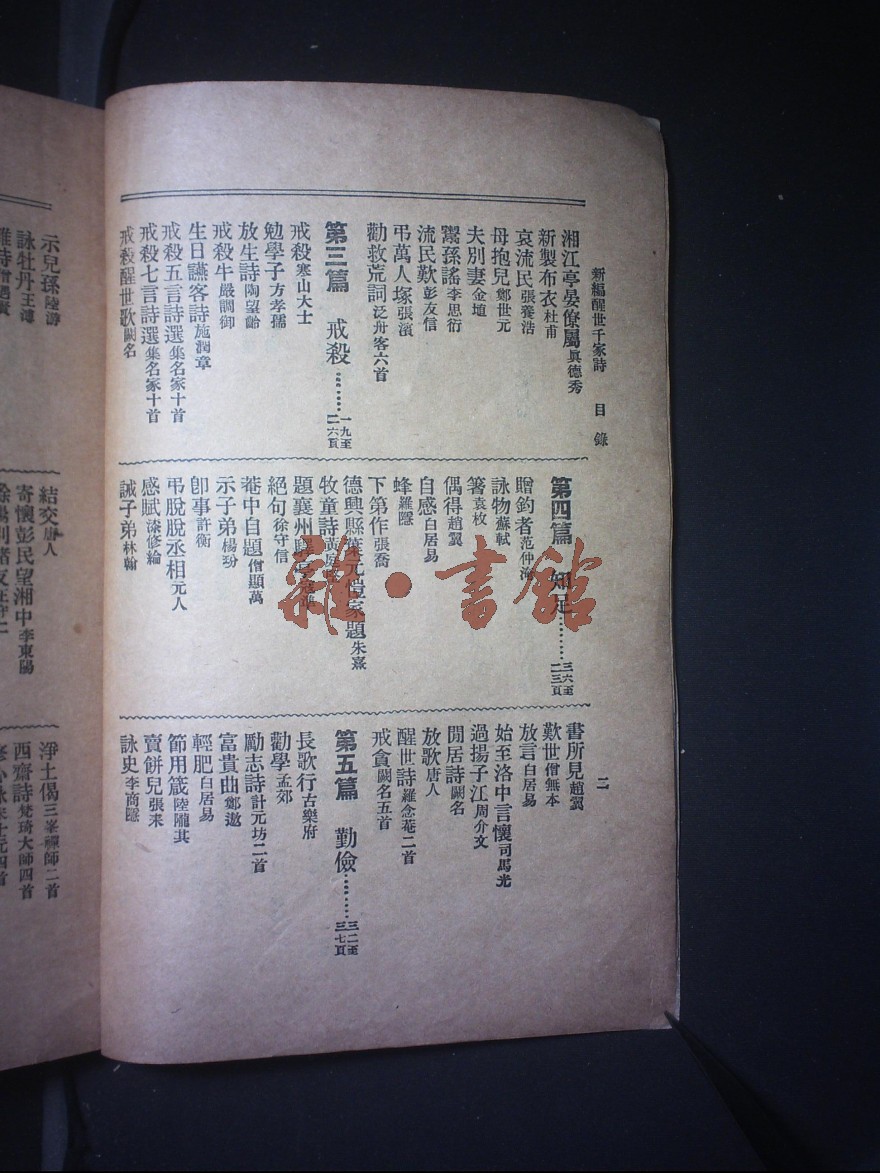 新編醒世千家詩 目錄
二
湘江亭晏僚屬真德秀
新製布衣杜甫
哀流民張養浩
母抱兒鄭世元
夫別妻金埴
鬻孫謠李思衍
流民歎彭友信
弔萬人塚張濱
勸救荒詞泛舟客六首
第三篇 戒殺………一九至二六頁
戒殺寒山大士
勉學子方孝孺
放生詩陶望齡
戒殺牛嚴調御
生日讌客詩施潤章
戒殺五言詩選集名家十首
戒殺七言詩選集名家十首
戒殺醒世歌闕名
第四篇 知足………二六至三三頁
贈釣者范仲淹
詠物蘇軾
箸袁枚
偶得趙翼
自感白居易
蜂羅隱
下第作張喬
德興縣葉元愷家題朱熹
牧童詩黃庭堅
題襄州驛
絕句徐守信
菴中自題僧顯萬
示子弟楊玢
卽事許衡
弔脫脫丞相元人
感賦漆修綸
誡子弟林翰
書所見趙翼
歎世僧無本
放言白居易
始至洛中言懷司馬光
過揚子江周介文
閒居詩闕名
放歌唐人
醒世詩羅念菴二首
戒貪闕名五首
第五篇 勤儉………三三至三七頁
長歌行古樂府
勸學孟郊
勵志詩計元坊二首
富貴曲鄭遨
輕肥白居易
節用箴陸隴其
賣餅兒張耒
詠史李商隱
示兒孫陸游
詠牡丹王溥
結交唐人
寄懷彭民望湘中李東陽
淨土偈三峯禪師二首
西齋詩梵琦大師四首
雜·書館